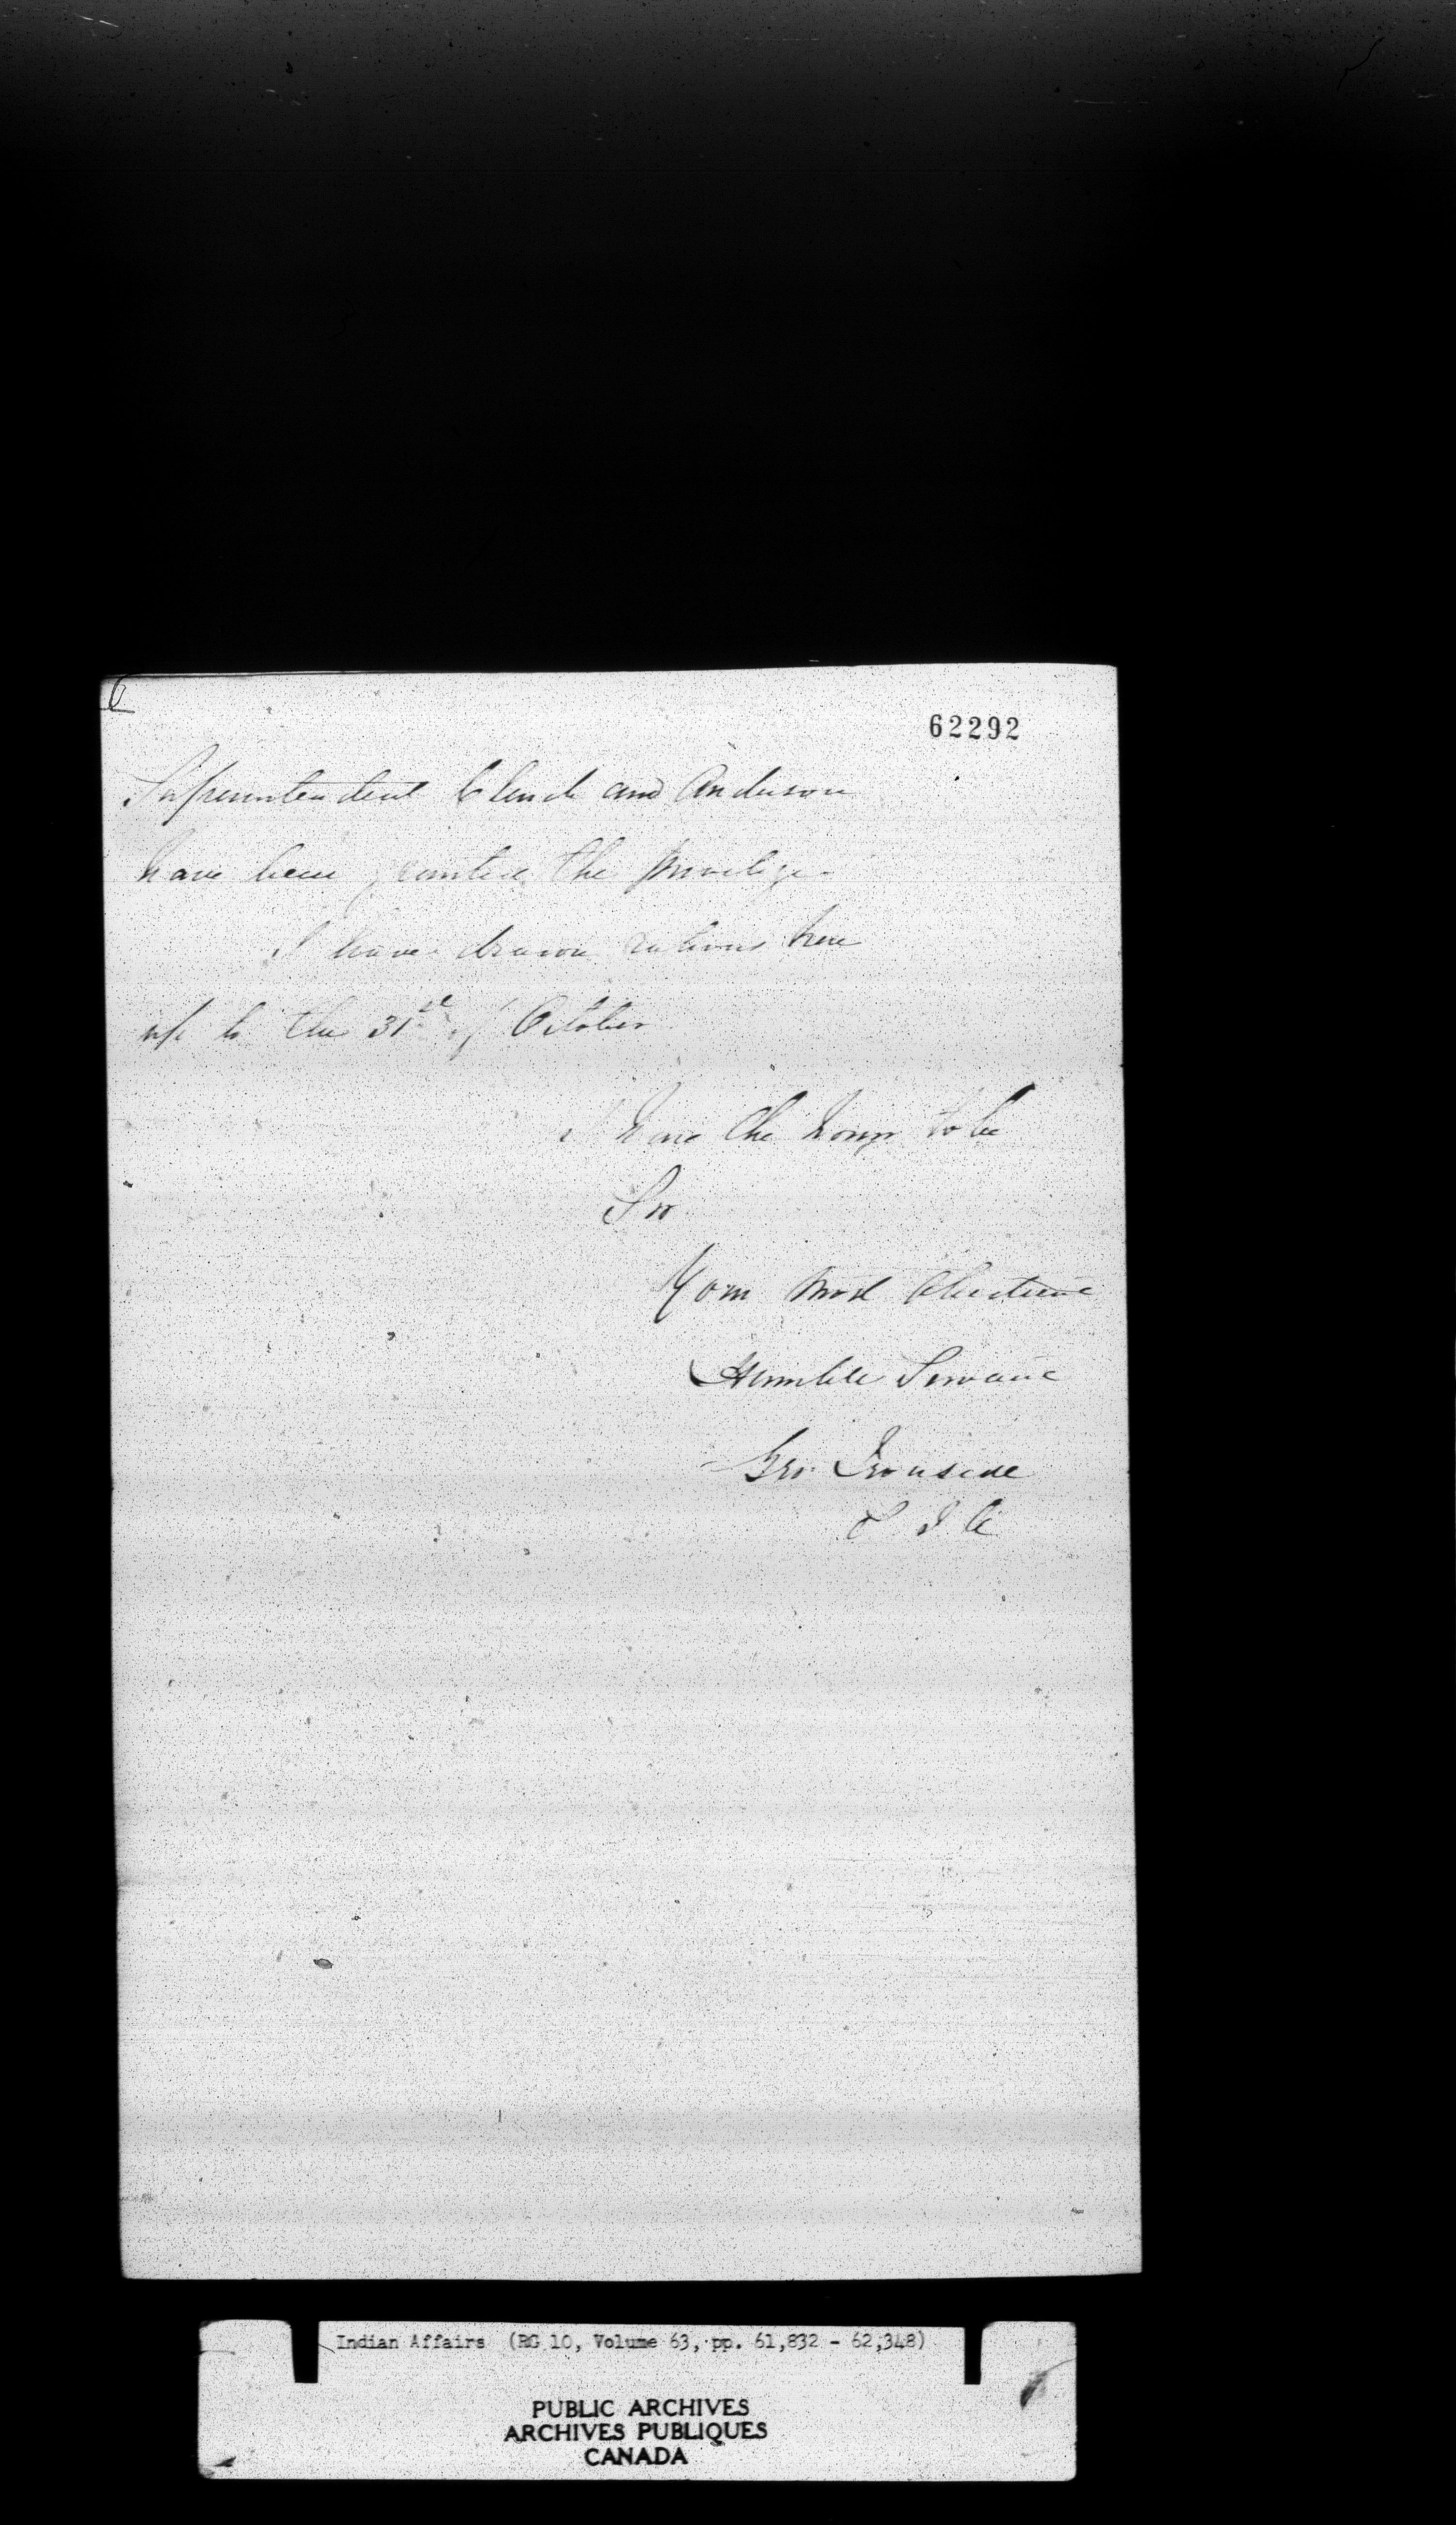 62292
Superintendent Clench and Anderson
have been granted the privilege.
I have drawn rations here
up to the 31st of October
I have the honor to be
Sir
Your most Obedient
Humble Servant
Geo Ironside
S I A
Indian Affairs (RG 10, Volume 63, pp. 61,832 - 62,348)
PUBLIC ARCHIVES
ARCHIVES PUBLIQUES
CANADA